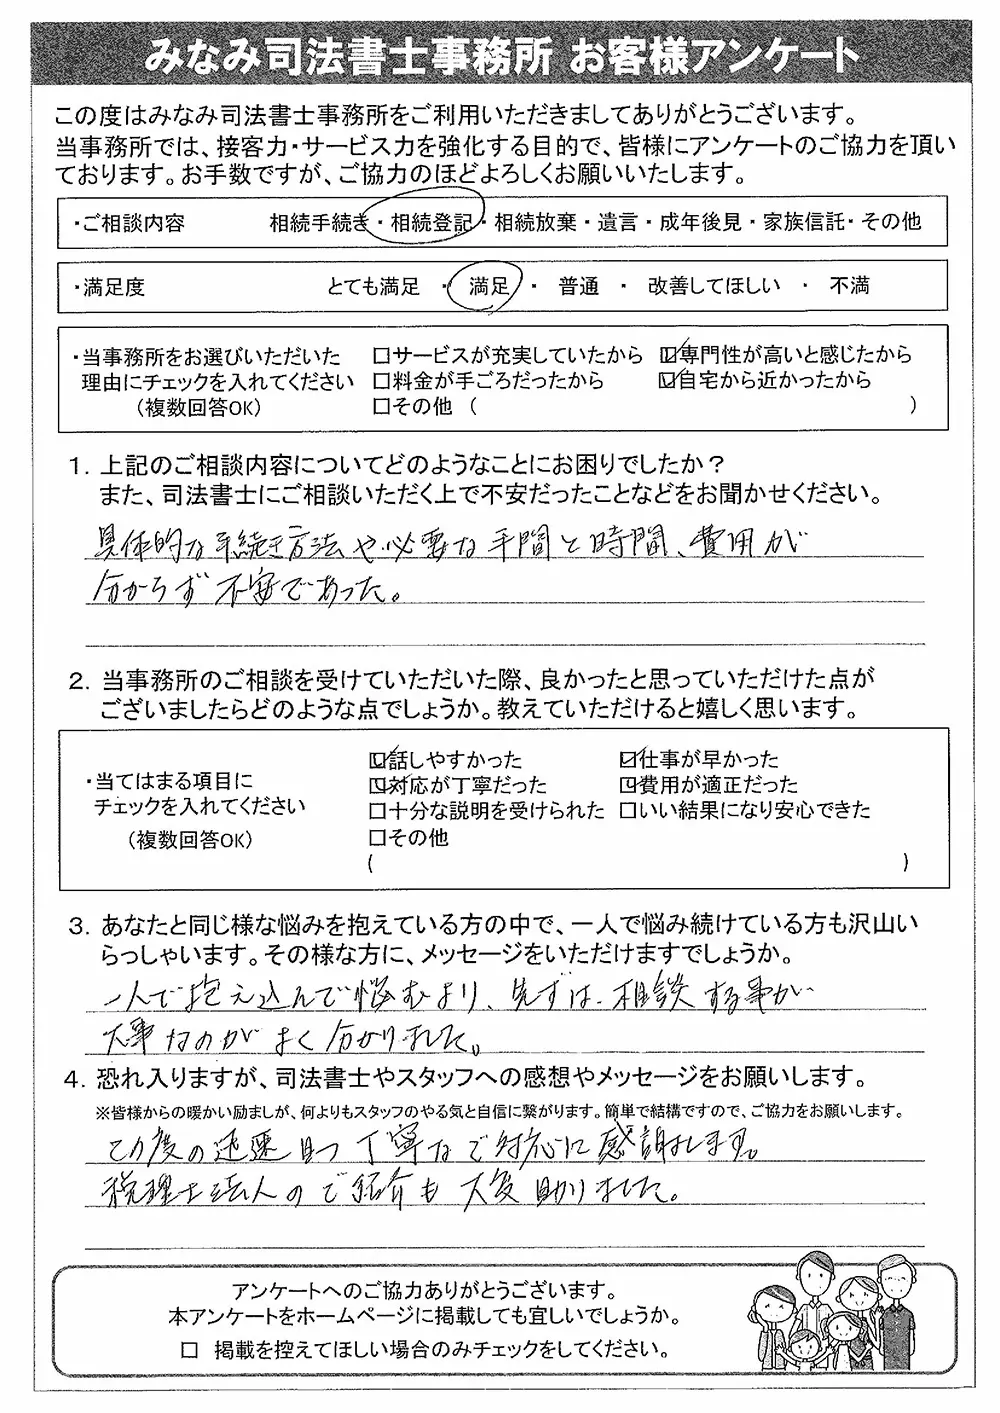 みなみ司法書士事務所 お客様アンケート
この度はみなみ司法書士事務所をご利用いただきましてありがとうございます。
当事務所では、接客力・サービス力を強化する目的で、皆様にアンケートのご協力を頂い
ております。お手数ですが、ご協力のほどよろしくお願いいたします。
・ご相談内容 相続手続き・相続登記・相続放棄・遺言・成年後見・家族信託・その他
・満足度 とても満足 ・ 満足 ・ 普通 ・ 改善してほしい ・ 不満
・当事務所をお選びいただいた □サービスが充実していたから ☑専門性が高いと感じたから
理由にチェックを入れてください □料金が手ごろだったから ☑自宅から近かったから
（複数回答OK） □その他 （ ）
1. 上記のご相談内容についてどのようなことにお困りでしたか？
また、司法書士にご相談いただく上で不安だったことなどをお聞かせください。
具体的な手続き方法や必要な手間と時間、費用が
分からず不安であった。
2. 当事務所のご相談を受けていただいた際、良かったと思っていただけた点が
ございましたらどのような点でしょうか。教えていただけると嬉しく思います。
☑話しやすかった ☑仕事が早かった
・当てはまる項目に ☑対応が丁寧だった ☑費用が適正だった
チェックを入れてください □十分な説明を受けられた □いい結果になり安心できた
（複数回答OK） □その他
（ ）
3. あなたと同じ様な悩みを抱えている方の中で、一人で悩み続けている方も沢山い
らっしゃいます。その様な方に、メッセージをいただけますでしょうか。
一人で抱え込んで悩むより、先ずは相談する事が
大事なのがよく分かりました。
4. 恐れ入りますが、司法書士やスタッフへの感想やメッセージをお願いします。
※皆様からの暖かい励ましが、何よりもスタッフのやる気と自信に繋がります。簡単で結構ですので、ご協力をお願いします。
この度の迅速且つ丁寧なご対応に感謝します。
税理士法人のご紹介も大変助かりました。
アンケートへのご協力ありがとうございます。
本アンケートをホームページに掲載しても宜しいでしょうか。
□ 掲載を控えてほしい場合のみチェックをしてください。